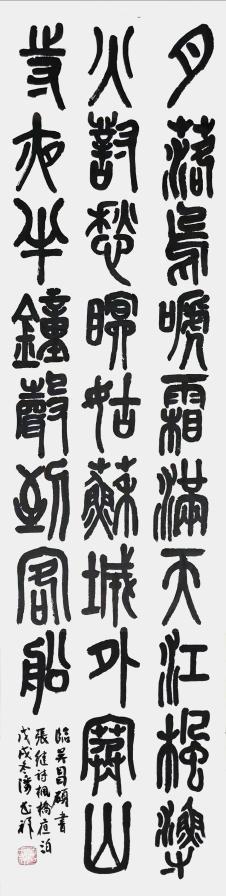 月落烏嗁霜滿天江楓漁
火對愁眠姑蘇城外寒山
寺夜半鐘聲到客船
臨吴昌碩書
張継詩楓橋夜泊
戊戌冬